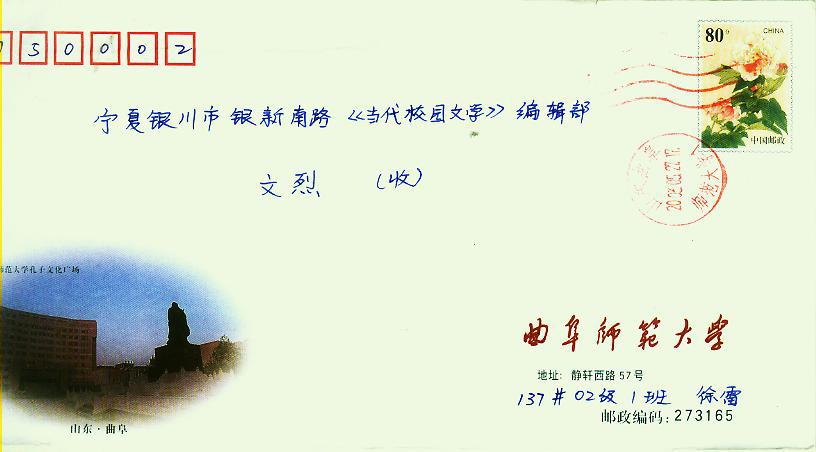 750002
80分
CHINA
中国邮政
宁夏银川市银新南路《当代校园文学》编辑部
文烈 (收)
师范大学孔子文化广场
曲阜师范大学
地址：静轩西路57号
137# 02级1班 徐雷
邮政编码：273165
山东·曲阜